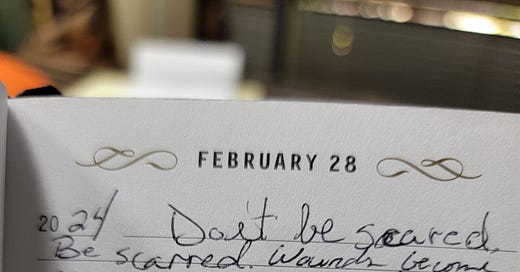 FEBRUARY 28
2024 Don't be scared.
Be scarred. Wounds become